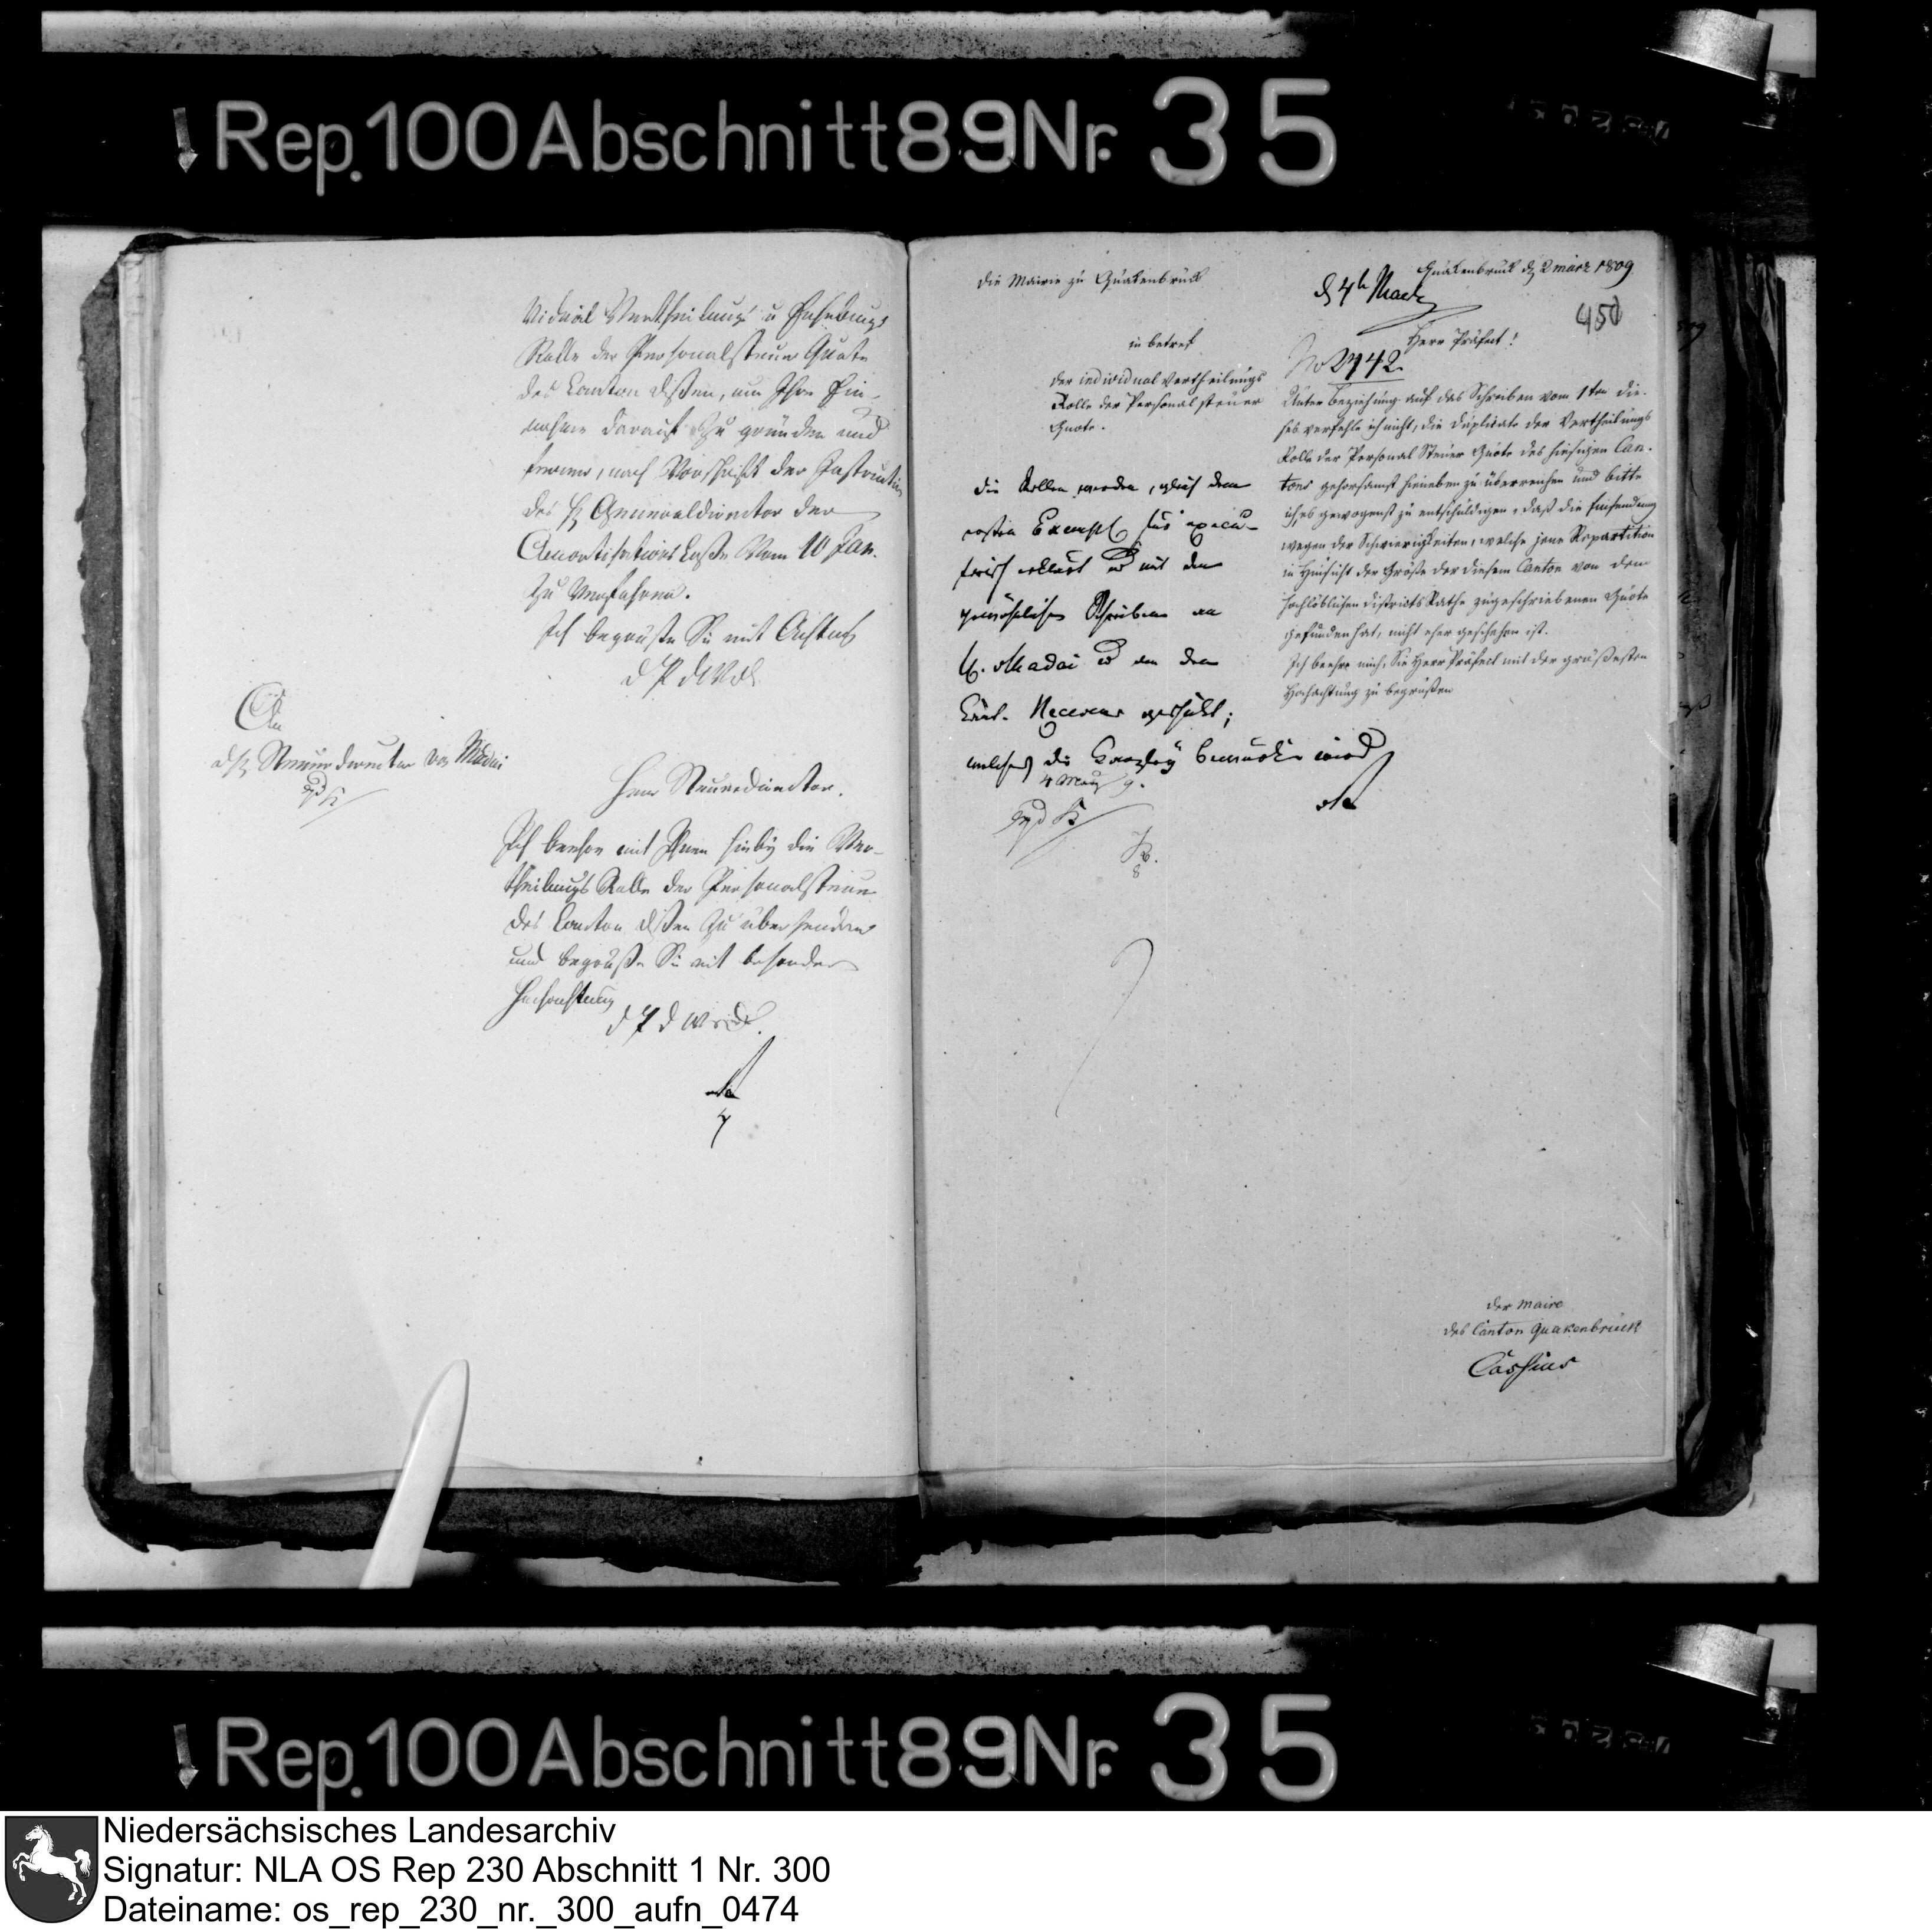 Rep. 100 Abschnitt 89 Nr. 35
vidual Vertheilungs u Erhebungs
Rolle der Personalsteuer Quote
des Canton Dissen, um Ihre Ein-
nahme darauf zu gründen und
ferner, nach Vorschrift der Instruction
des H Generaldirector der
Amortisations Casse vom 10 Jan.
zu verfahren.
Ich begrüße Sie mit Achtung
d P d W D.
An
d H Steuerdirector von Madai
Herr Steuerdirector.
Ich beehre mit Ihnen hiebey die Ver-
theilungs Rolle der Personalsteuer
des Canton Dissen zu übersenden
und begrüße Sie mit besonderer
Hochachtung
d P d W D.
Die Mairie zu Quakenbrück
Quakenbrück d 2 märz 1809
d 4t März
450
in betref
der individual Vertheilungs
Rolle der Personal steuer
Quote.
Herr Präfect!
No 2742.
Unter Beziehung auf das Schreiben vom 1ten die-
ses verfehle ich nicht, die Duplicate der Vertheilungs
Rolle der Personal Steuer Quote des hiesigen Can-
tons gehorsamst hieneben zu überreichen und bitte
ich, es gewogenst zu entschuldigen, daß die Einsendung
wegen der Schwierigkeiten, welche jene Repartition
in Hinsicht der Größe der diesem Canton von dem
hochlöblichen Districts Rathe zugeschriebenen Quote
gefunden hat, nicht eher geschehen ist.
Ich beehre mich, Sie Herr Präfect mit der größesten
Hochachtung zu begrüßen
Die Rollen werden, gleich dem
ersten Exempl für execu-
torisch erklärt und mit dem
gewöhnlichen Schreiben an
H. Madai und an den
Cant. Receveur geschickt;
welches die Canzley bemerken wird
4 März 9.
der Maire
des Canton Quakenbrück
Cassius
Rep. 100 Abschnitt 89 Nr. 35
Niedersächsisches Landesarchiv
Signatur: NLA OS Rep 230 Abschnitt 1 Nr. 300
Dateiname: os_rep_230_nr._300_aufn_0474